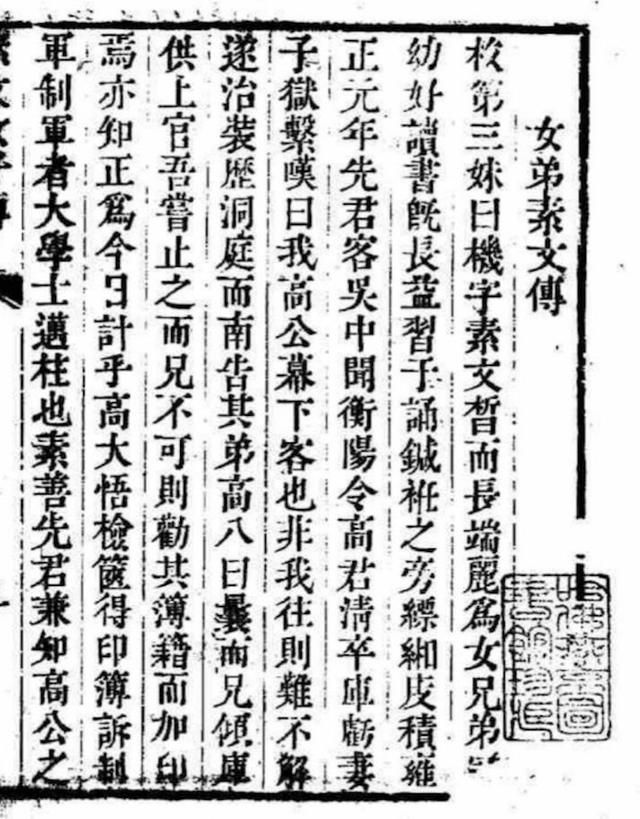 女弟素文傳
枚第三妹曰機字素文晳而長端麗爲女兄弟
幼好讀書旣長益習于誦鍼袵之旁縹緗庋積雍
正元年先君客吳中聞衡陽令高君淸卒庫虧妻
子獄繫嘆曰我高公幕下客也非我往則難不解
遂治裝歷洞庭而南告其弟高八曰曩而兄傾庫
供上官吾嘗止之而兄不可則勸其簿籍而加印
焉亦知正爲今日計乎高大悟檢篋得印簿訴制
軍制軍者大學士邁柱也素善先君兼知高公之